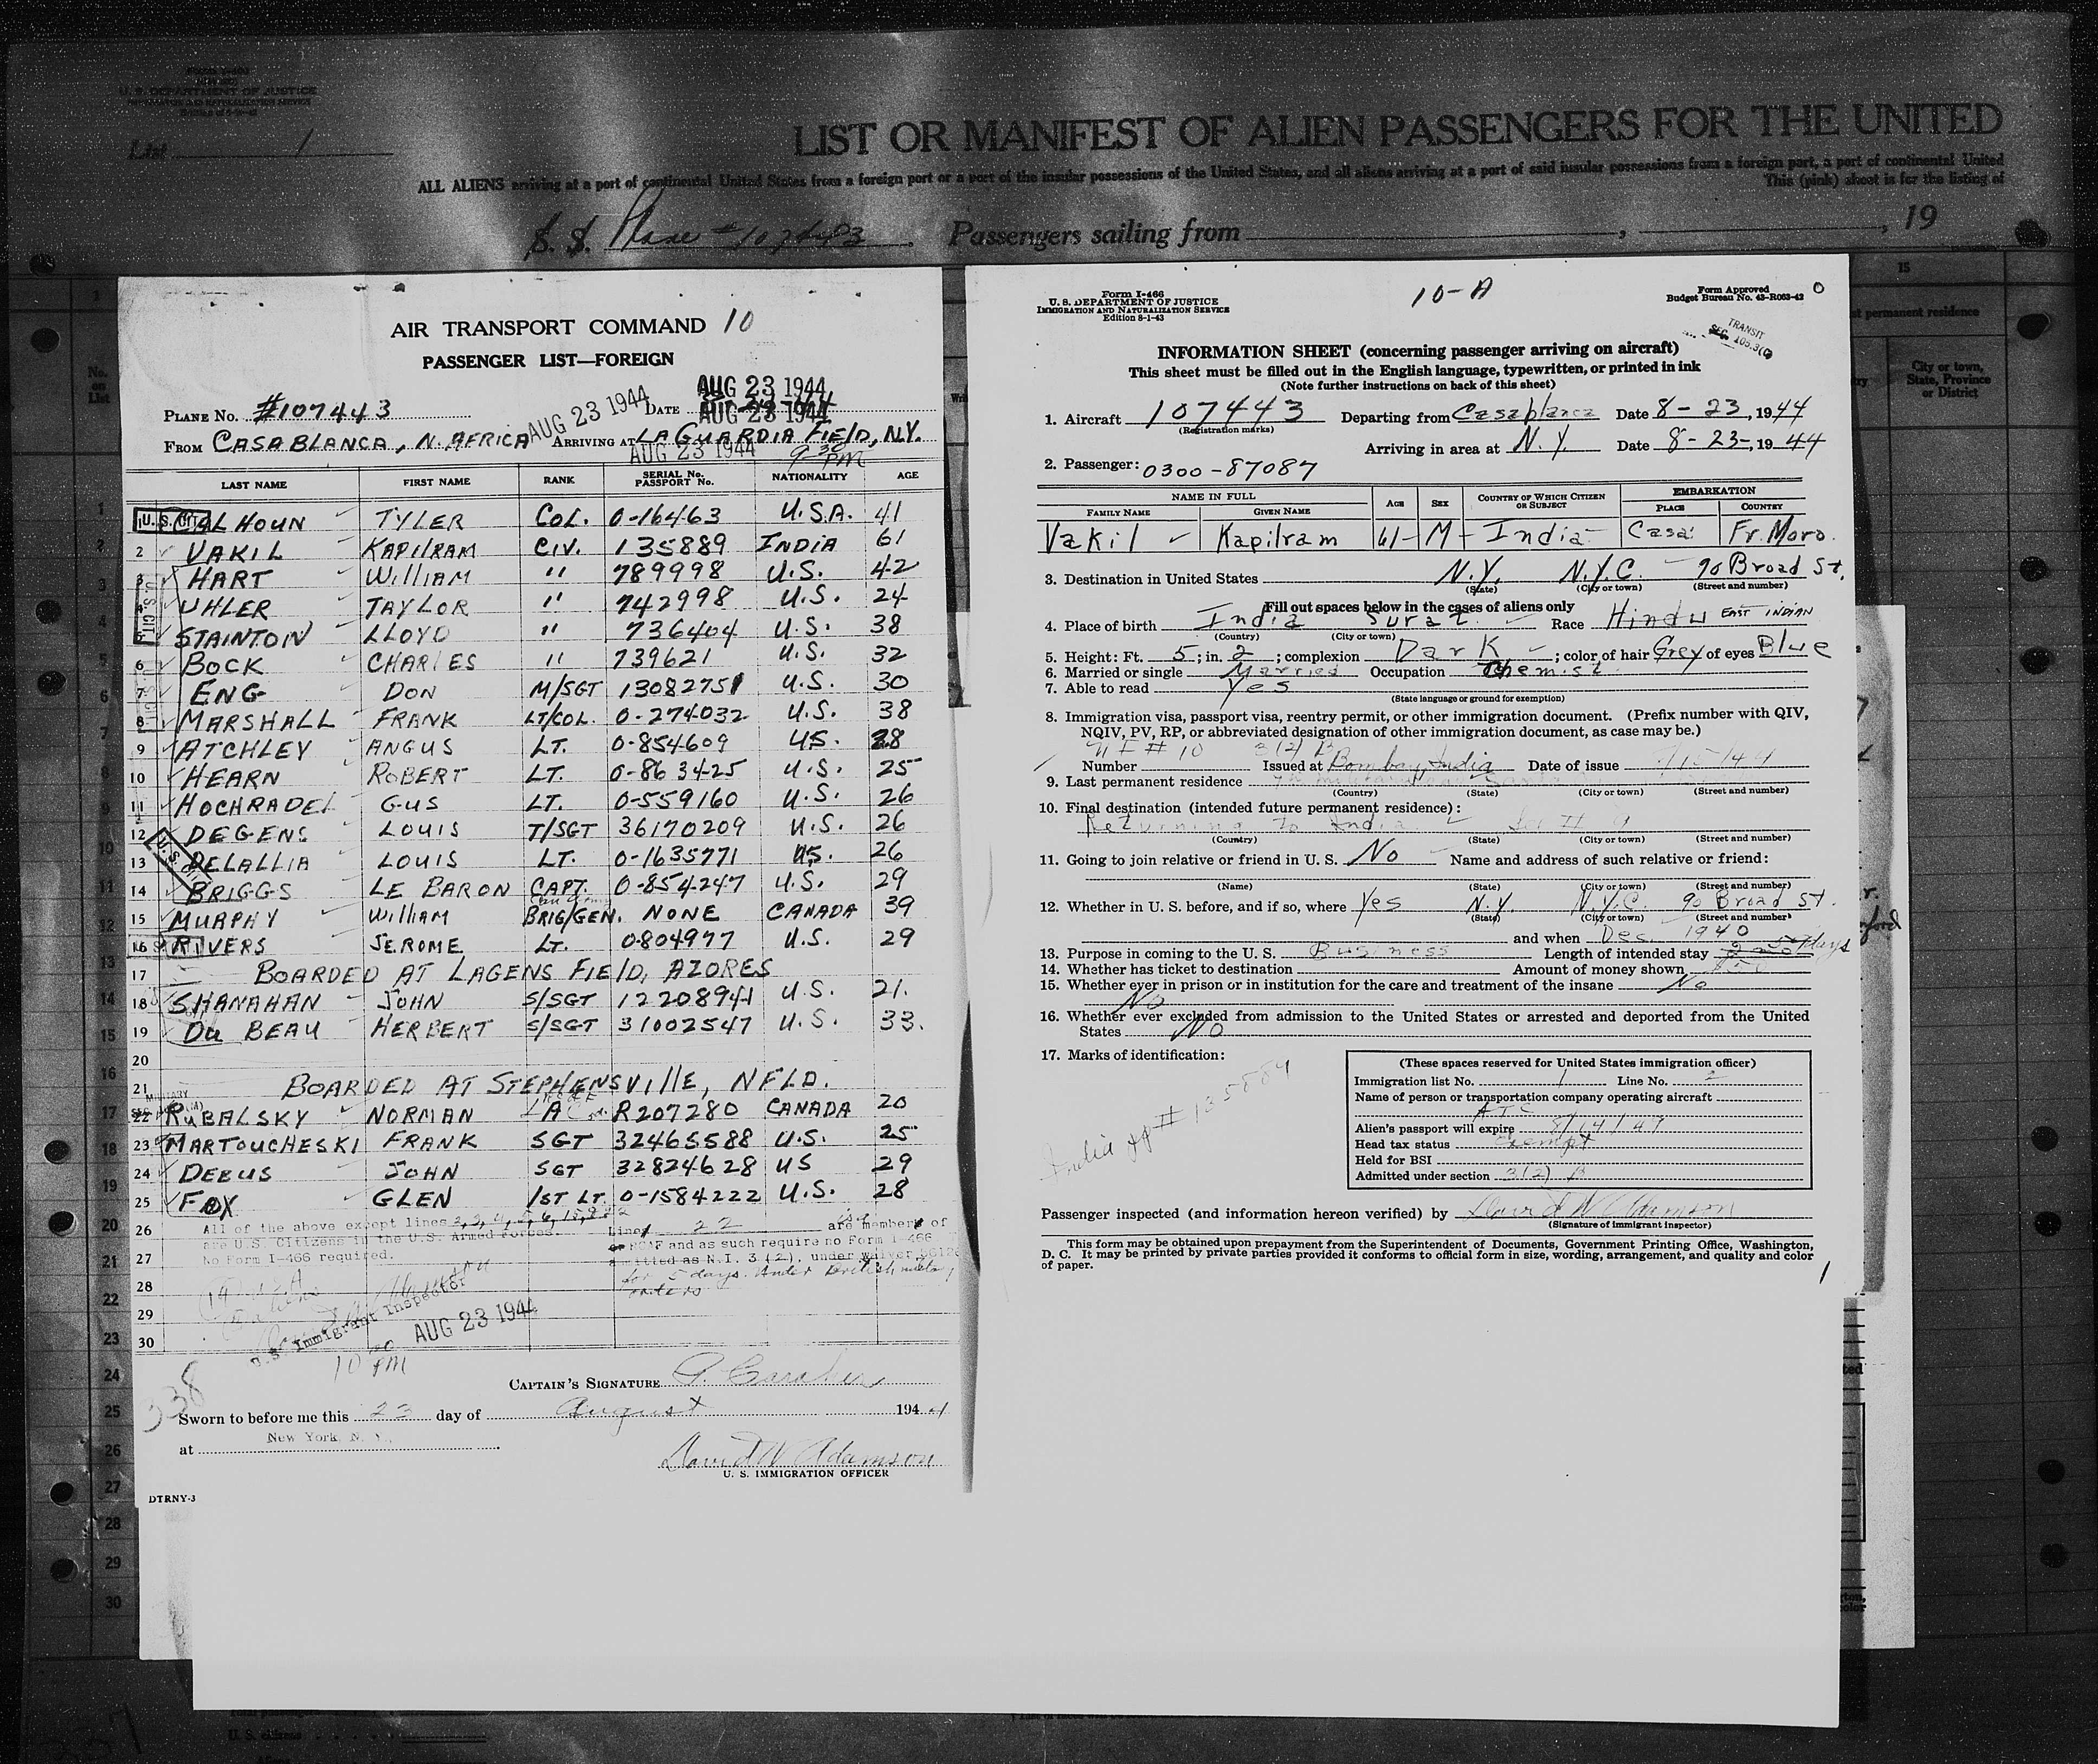 Form I-466
U. S. DEPARTMENT OF JUSTICE
IMMIGRATION AND NATURALIZATION SERVICE
List 1
LIST OR MANIFEST OF ALIEN PASSENGERS FOR THE UNITED
ALL ALIENS arriving at a port of continental United States from a foreign port or a port of the insular possessions of the United States, and all aliens arriving at a port of said insular possessions from a foreign port, a port of continental United
This (pink) sheet is for the listing of
S. S. Plane #107443. Passengers sailing from , , 19
AIR TRANSPORT COMMAND 10
PASSENGER LIST—FOREIGN
PLANE No. #107443 AUG 23 1944 DATE AUG 23 1944
AUG 23 1944
FROM CASABLANCA, N. AFRICA ARRIVING AT LA GUARDIA FIELD, N.Y.
AUG 23 1944 9 30 PM
LAST NAME FIRST NAME RANK SERIAL No. PASSPORT No. NATIONALITY AGE
1 U. S. CIT. CALHOUN TYLER COL. 0-16463 U.S.A. 41
2 VAKIL KAPILRAM CIV. 135889 INDIA 61
3 HART WILLIAM " 789998 U.S. 42
4 UHLER TAYLOR " 742998 U.S. 24
5 STAINTON LLOYD " 736404 U.S. 38
6 BOCK CHARLES " 739621 U.S. 32
7 ENG DON M/SGT 13082751 U.S. 30
8 MARSHALL FRANK LT/COL. 0-274032 U.S. 38
9 ATCHLEY ANGUS LT. 0-854609 US. 28
10 HEARN ROBERT LT. 0-863425 U.S. 25
11 HOCHRADEL GUS LT. 0-559160 U.S. 26
12 DEGENS LOUIS T/SGT 36170209 U.S. 26
13 DELALLIA LOUIS LT. 0-1635771 US. 26
14 BRIGGS LE BARON CAPT. 0-854247 U.S. 29
15 MURPHY WILLIAM BRIG/GEN. NONE CANADA 39
16 RIVERS JEROME LT. 0-804977 U.S. 29
17 BOARDED AT LAGENS FIELD, AZORES
18 SHANAHAN JOHN S/SGT 12208941 U.S. 21.
19 DU BEAU HERBERT S/SGT 31002547 U.S. 33.
20
21 BOARDED AT STEPHENSVILLE, NFLD.
22 RUBALSKY NORMAN LA R207280 CANADA 20
23 MARTOUCHESKI FRANK SGT 32465588 U.S. 25
24 DEBUS JOHN SGT 32824628 US 29
25 FOX GLEN 1ST LT. 0-1584222 U.S. 28
26 All of the above except lines 2, 3, 4, 5, 6, 15, & 22 Line 22 are members of
are U.S. Citizens in the U.S. Armed Forces. or RCAF and as such require no Form I-466
27 No Form I-466 required. admitted as N.I. 3 (2), under waiver
28 for 5 days. Under British military
orders
29 U.S. Immigrant Inspector
30 AUG 23 1944
10 PM
CAPTAIN'S SIGNATURE
338
Sworn to before me this 23 day of August 1944
at New York, N. Y.
David W Adamson
U. S. IMMIGRATION OFFICER
DTRNY-3
Form I-466
U. S. DEPARTMENT OF JUSTICE
IMMIGRATION AND NATURALIZATION SERVICE
Edition 8-1-43
10-A
Form Approved
Budget Bureau No. 43-R063-42
TRANSIT
SEC. 105.3(
INFORMATION SHEET (concerning passenger arriving on aircraft)
This sheet must be filled out in the English language, typewritten, or printed in ink
(Note further instructions on back of this sheet)
1. Aircraft 107443 Departing from Casablanca Date 8-23, 1944
(Registration marks)
Arriving in area at N.Y. Date 8-23-, 1944
2. Passenger: 0300-87087
NAME IN FULL AGE SEX COUNTRY OF WHICH CITIZEN OR SUBJECT EMBARKATION
FAMILY NAME GIVEN NAME PLACE COUNTRY
Vakil Kapilram 61- M- India Casa: Fr. Moro.
3. Destination in United States N.Y. N.Y.C. 90 Broad St.
(State) (City or town) (Street and number)
Fill out spaces below in the cases of aliens only
4. Place of birth India Surat Race Hindu EAST INDIAN
(Country) (City or town)
5. Height: Ft. 5; in. 2; complexion Dark; color of hair Grey of eyes Blue
6. Married or single Married Occupation Chemist
7. Able to read Yes
(State language or ground for exemption)
8. Immigration visa, passport visa, reentry permit, or other immigration document. (Prefix number with QIV,
NQIV, PV, RP, or abbreviated designation of other immigration document, as case may be.)
# 10 3(2) B
Number Issued at Bombay, India Date of issue
9. Last permanent residence
(Country) (State) (City or town) (Street and number)
10. Final destination (intended future permanent residence):
Returning to India
(Country) (State) (City or town) (Street and number)
11. Going to join relative or friend in U. S. No Name and address of such relative or friend:
(Name) (State) (City or town) (Street and number)
12. Whether in U. S. before, and if so, where Yes N.Y. N.Y.C. 90 Broad St.
(State) (City or town) (Street and number)
and when Dec 1940
13. Purpose in coming to the U. S. Business Length of intended stay days
14. Whether has ticket to destination Amount of money shown
15. Whether ever in prison or in institution for the care and treatment of the insane No
No
16. Whether ever excluded from admission to the United States or arrested and deported from the United
States No
17. Marks of identification:
India pp # 135889
(These spaces reserved for United States immigration officer)
Immigration list No. 1 Line No. 2
Name of person or transportation company operating aircraft
ATC
Alien's passport will expire
Head tax status exempt
Held for BSI
Admitted under section 3(2) B
Passenger inspected (and information hereon verified) by David W Adamson
(Signature of immigrant inspector)
This form may be obtained upon prepayment from the Superintendent of Documents, Government Printing Office, Washington,
D. C. It may be printed by private parties provided it conforms to official form in size, wording, arrangement, and quality and color
of paper.